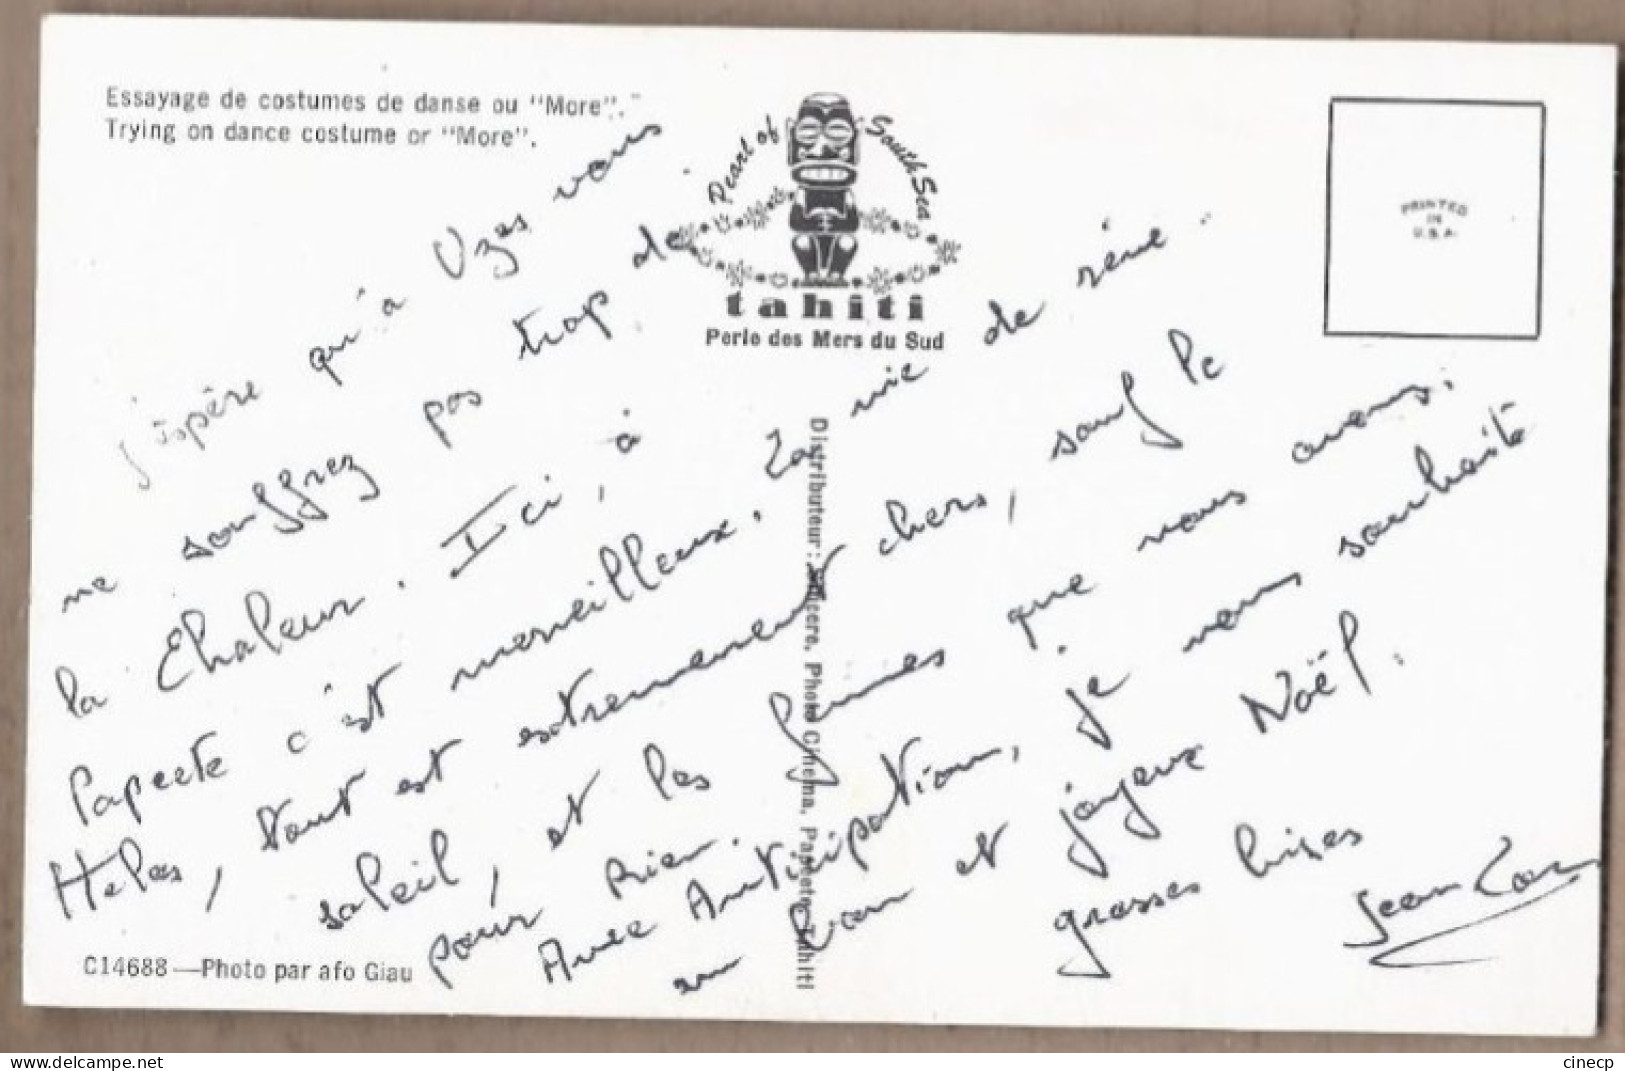 Essayage de costumes de danse ou "More".
Trying on dance costume or "More".
Pearl of South Sea
tahiti
Perle des Mers du Sud
PRINTED
IN
U.S.A.
J'espère qu'a Uzes vous
ne souffrez pas trop de
la Chaleur. Ici, à
Papeete c'est merveilleux. La vie de rêve.
Helas, tout est extremement chers, sauf le
soleil, et les femmes que nous avons.
pour rien.
Avec Anticipation, je vous souhaite
un bon et joyeux Noël.
grosses bises
Jean Lou
Distributeur: Sincere, Photo Cinema, Papeete, Tahiti
C14688—Photo par afo Giau
www.delcampe.net
cinecp